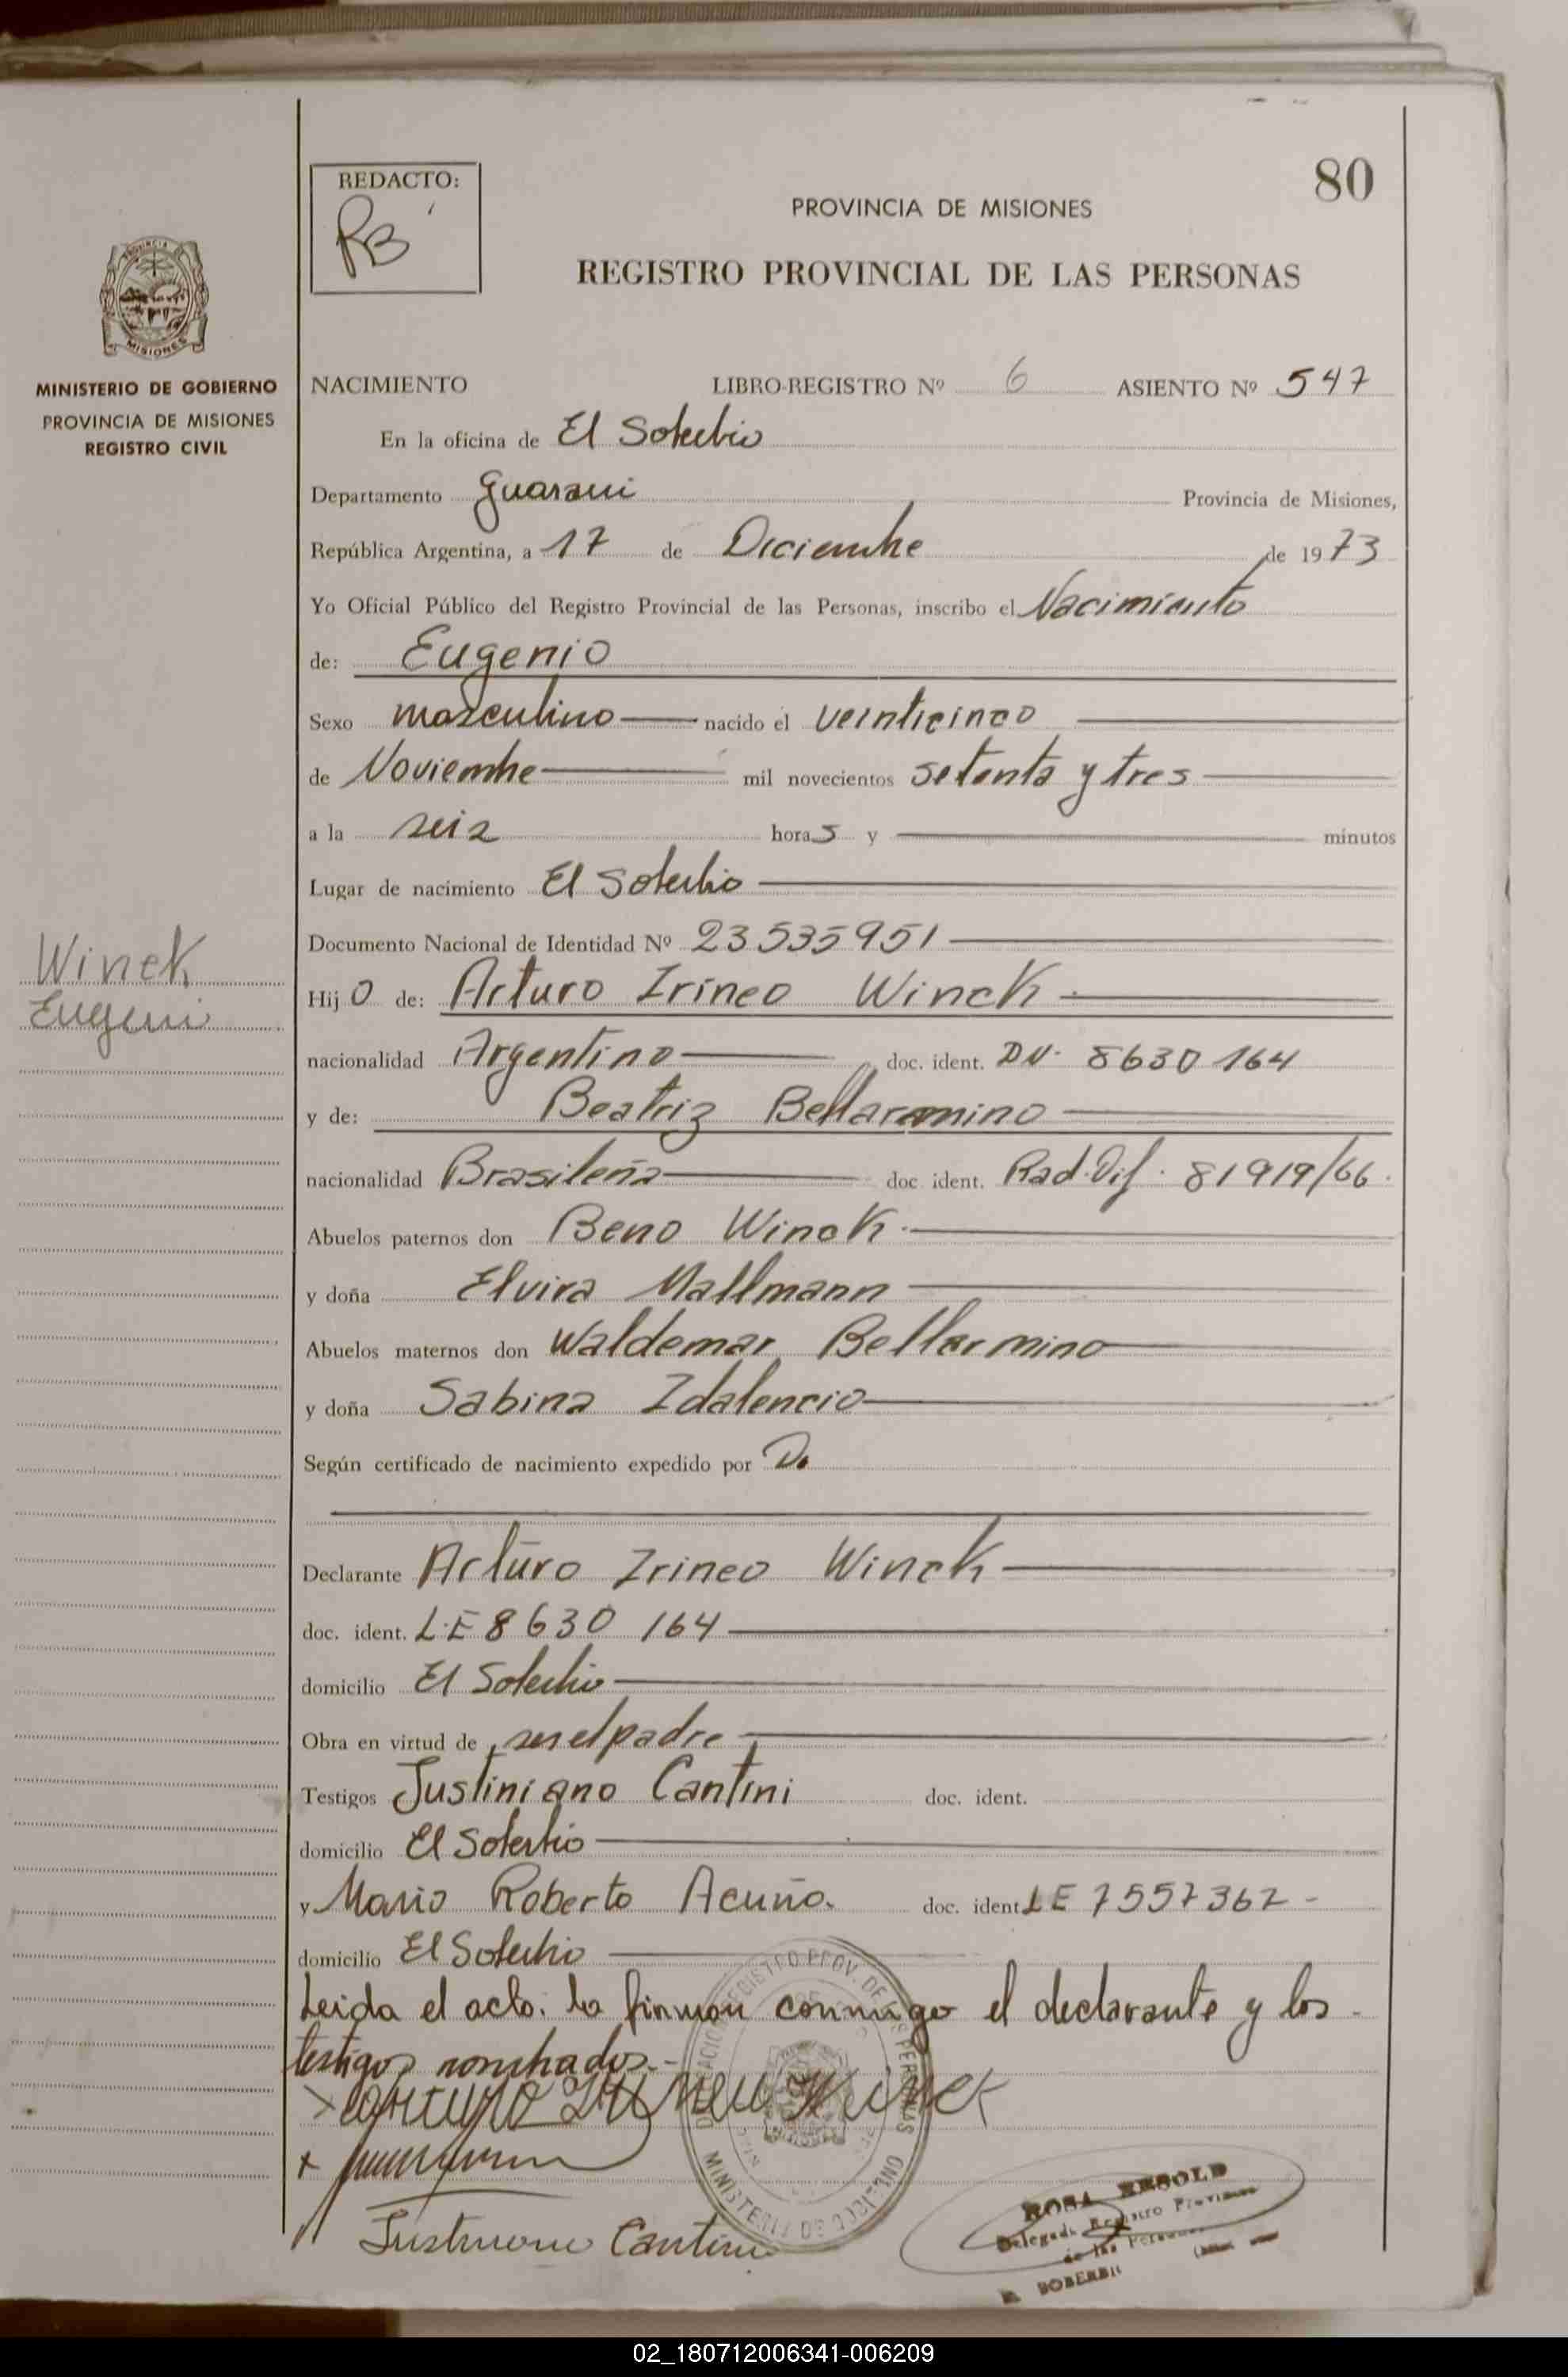 80
REDACTO:
RB
PROVINCIA DE MISIONES
REGISTRO PROVINCIAL DE LAS PERSONAS
MISIONES
MINISTERIO DE GOBIERNO
PROVINCIA DE MISIONES
REGISTRO CIVIL
NACIMIENTO LIBRO-REGISTRO Nº 6 ASIENTO Nº 547
En la oficina de El Soberbio
Departamento Guarani Provincia de Misiones,
República Argentina, a 17 de Diciembre de 1973
Yo Oficial Público del Registro Provincial de las Personas, inscribo el Nacimiento
de: Eugenio
Sexo masculino nacido el veinticinco
de Noviembre mil novecientos setenta y tres
a la seis horas y minutos
Lugar de nacimiento El Soberbio
Documento Nacional de Identidad Nº 23535951
Winck
Eugeni
Hijo de: Arturo Irineo Winck
nacionalidad Argentino doc. ident. DN. 8630164
y de: Beatriz Bellaramino
nacionalidad Brasileña doc. ident. Rad. Dif. 81919/66.
Abuelos paternos don Beno Winck.
y doña Elvira Mallmann
Abuelos maternos don Waldemar Bellarmino
y doña Sabina Idalencio
Según certificado de nacimiento expedido por
Declarante Arturo Irineo Winck
doc. ident. L.E 8630 164
domicilio El Soberbio
Obra en virtud de ser el padre
Testigos Justiniano Cantini doc. ident.
domicilio El Soberbio
y Mario Roberto Acuña. doc. ident. LE 7557362 -
domicilio El Soberbio
Leida el acto. la firman conmigo el declarante y los
testigos nombrados.-
x Arturo Irineo Winck
Justiniano Cantini
MINISTERIO DE
ROSA
Delegada Registro Provincial
de las Personas
EL SOBERBIO
02_180712006341-006209